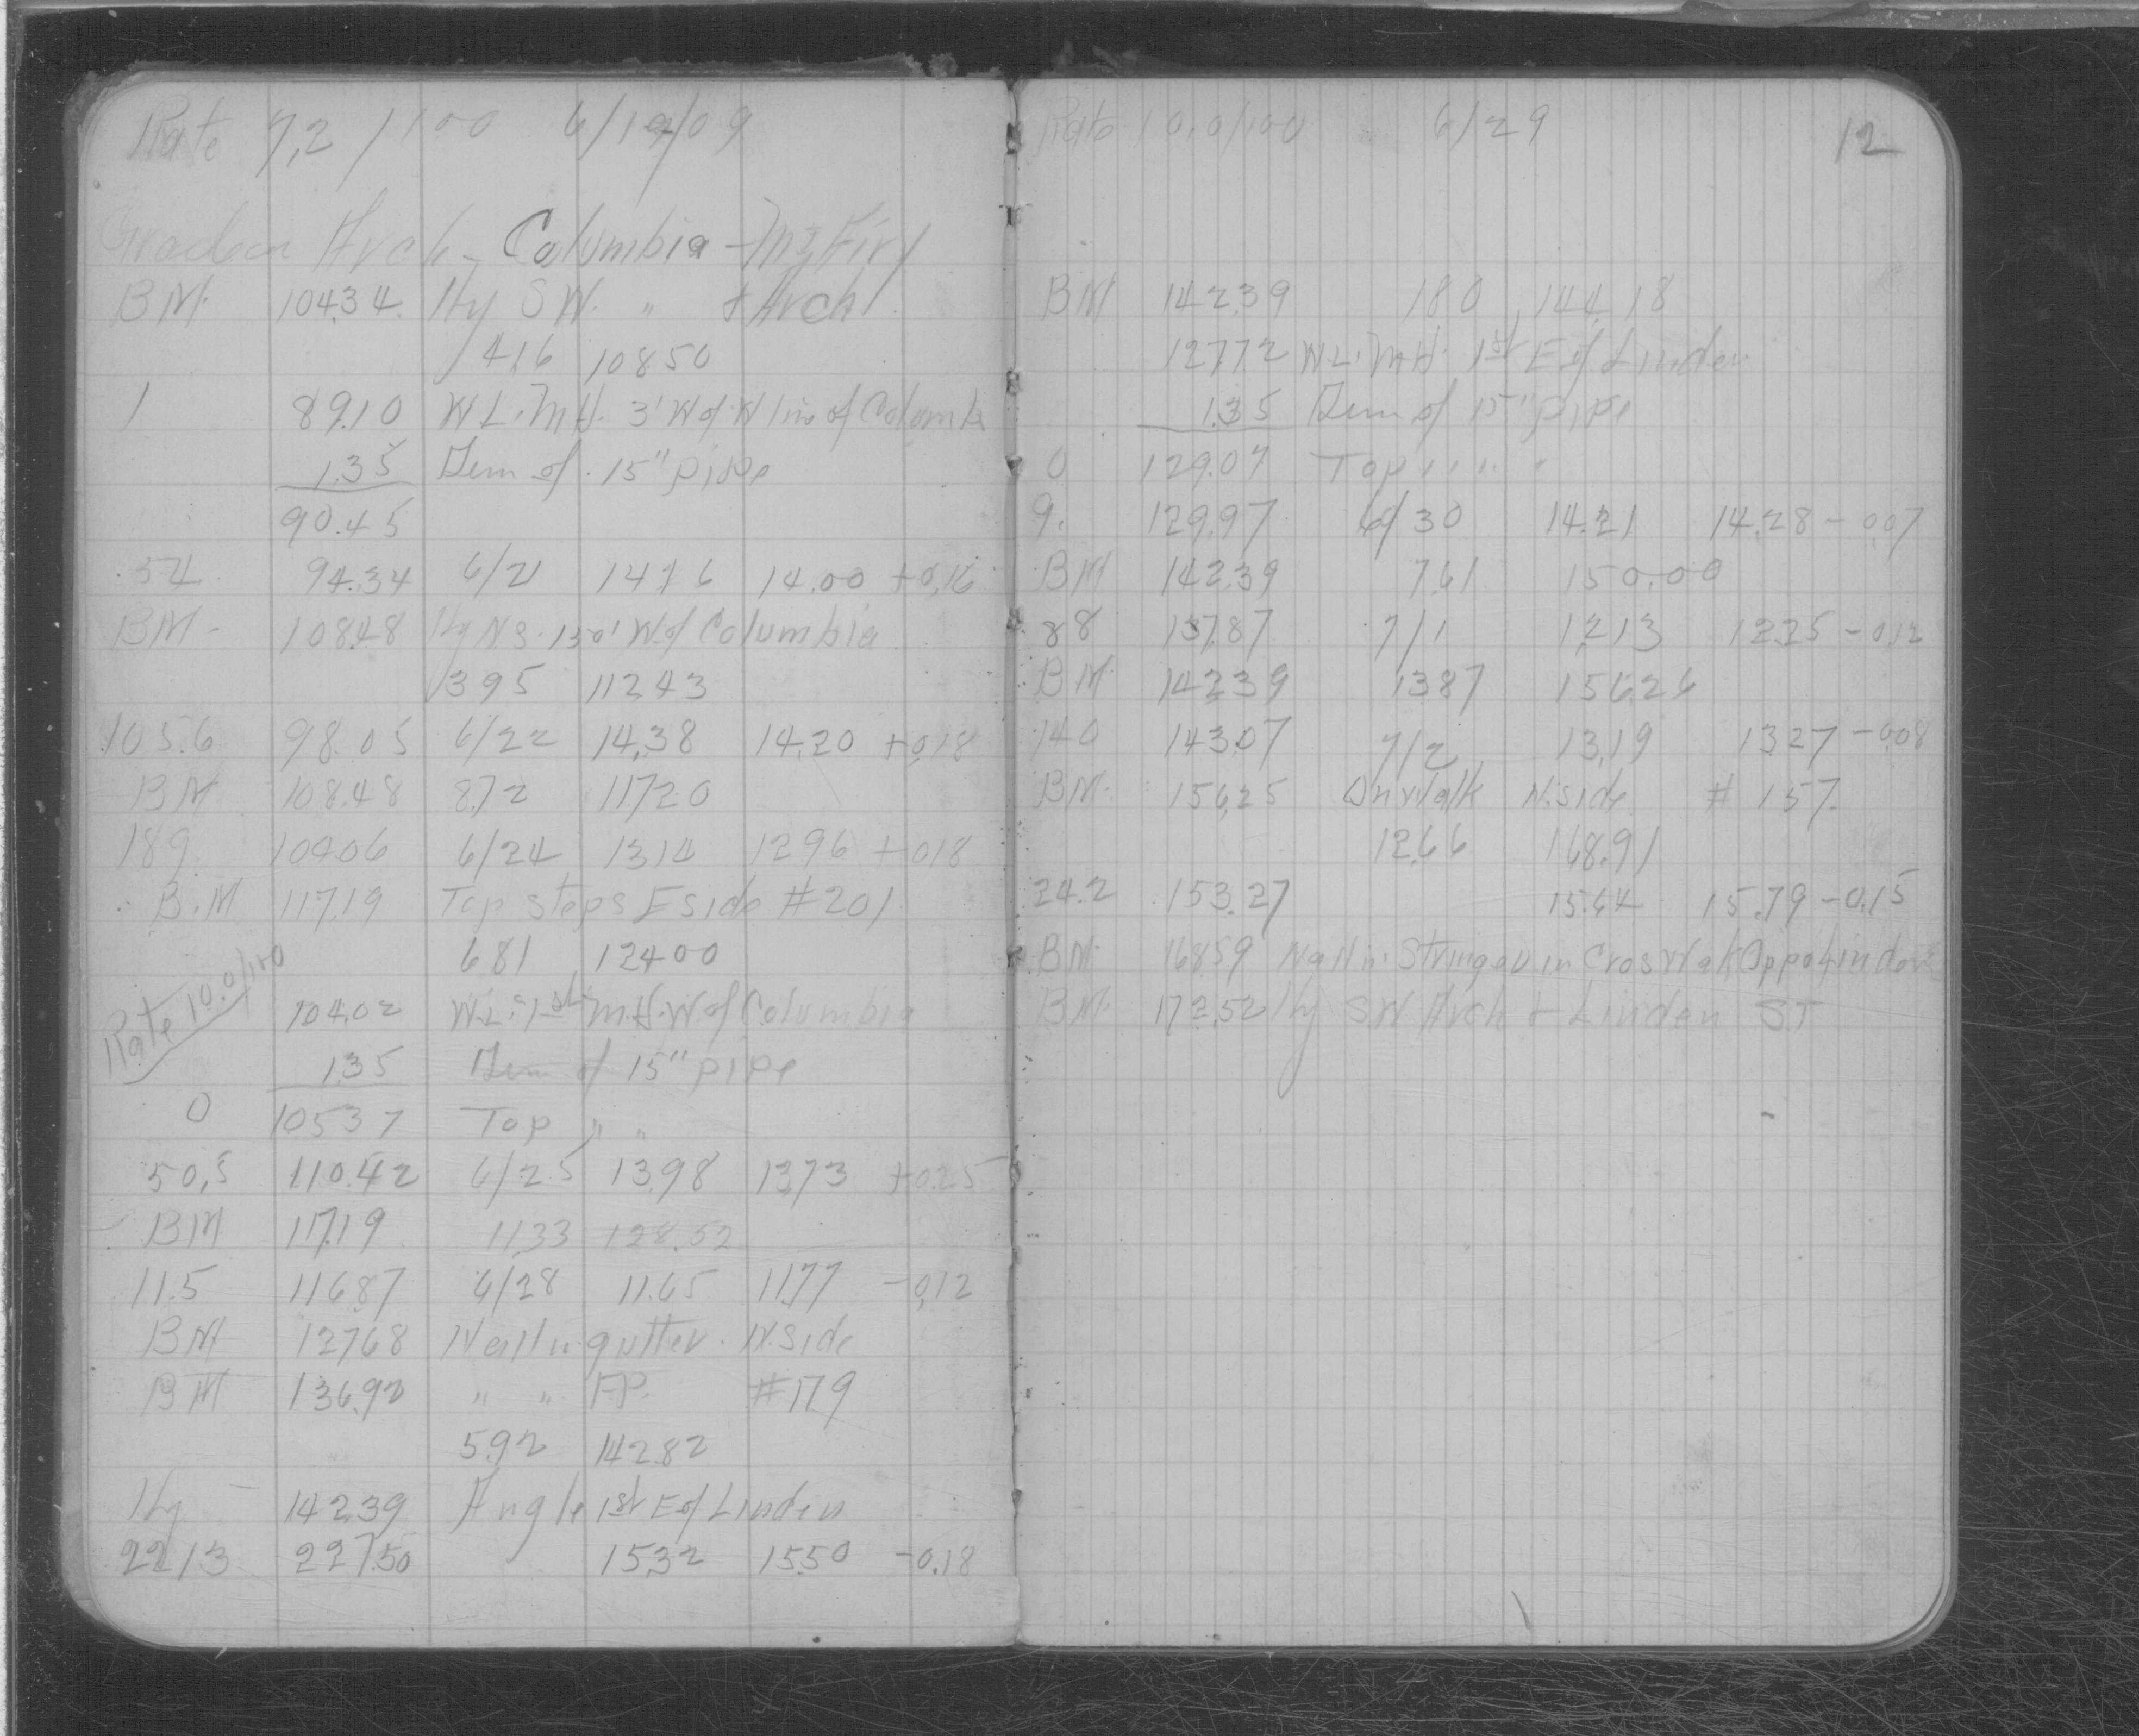 Rate 7.2/100 6/19/09
Arch - Columbia -
BM. 104.34 Hy SW. " & Arch
4.16 108.50
1 89.10 W.L. M.H. 3' W of W line of Columbia
1.35 Dem of 15" pipe
90.45
.54 94.34 6/21 14.16 14.00 +0.16
BM - 108.48 Hy N.S. 150' W of Columbia
3.95 112.43
105.6 98.05 6/22 14.38 14.20 +0.18
BM 108.48 8.72 117.20
189 104.06 6/24 13.14 12.96 +0.18
B.M 117.19 Top steps E side #201
6.81 124.00
Rate 10.0/100
104.02 W.L. 1st M.H. W of Columbia
1.35 Dem of 15" pipe
0 105.37 Top " "
50.5 110.42 6/25 13.98 13.73 +0.25
BM 117.19 11.33 128.52
11.5 116.87 6/28 11.65 11.77 -0.12
BM 127.68 Nail in gutter. N. Side
BM 136.90 " " F.P. #179
5.92 142.82
Hy - 142.39 Angle 1st E of Linden
2213 227.50 15.32 15.50 -0.18
Rate 10.0/100 6/29 12
BM 142.39 1.80 144.18
127.72 W.L. M.H. 1st E of Linden
1.35 Dem of 15" pipe
0 129.07 Top " " "
9. 129.97 6/30 14.21 14.28 -0.07
BM 142.39 7.61 150.00
88 137.87 7/1 12.13 12.25 -0.12
BM 142.39 13.87 156.26
140 143.07 7/2 13.19 13.27 -0.08
BM. 156.25 On Walk N. side #157.
12.66 168.91
24.2 153.27 15.64 15.79 -0.15
BM. 168.59 Nail in Stringer in Cros Walk Oppo Linden
BM. 172.52 Hy SW Arch & Linden ST